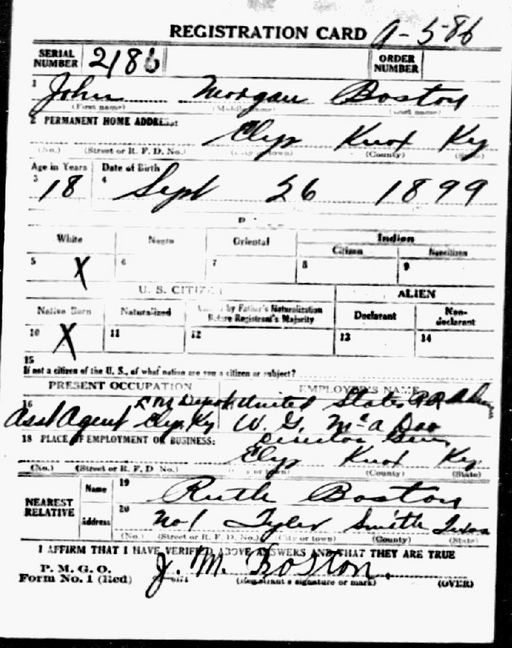 REGISTRATION CARD A-5-86
SERIAL NUMBER 2186 ORDER NUMBER
1 John Morgan Boston
(First name) (Middle name) (Last name)
2 PERMANENT HOME ADDRESS:
Elys Knox Ky
(No.) (Street or R. F. D. No.) (City or town) (County) (State)
Age in Years Date of Birth
3 18 4 Sept 26 1899
White Negro Oriental Indian
Citizen Noncitizen
5 X 6 7 8 9
U. S. CITIZEN ALIEN
Native Born Naturalized Citizen by Father's Naturalization Before Registrant's Majority Declarant Non-declarant
10 X 11 12 13 14
15
If not a citizen of the U. S., of what nation are you a citizen or subject?
PRESENT OCCUPATION EMPLOYER'S NAME
16 Depot United States RR
Asst Agent Elys Ky W. G. McAdoo
18 PLACE OF EMPLOYMENT OR BUSINESS: Director Gen
Elys Knox Ky
(No.) (Street or R. F. D. No.) (City or town) (County) (State)
NEAREST RELATIVE Name 19 Ruth Boston
Address 20 No 1 Tyler Smith Texas
(No.) (Street or R. F. D. No.) (City or town) (County) (State)
I AFFIRM THAT I HAVE VERIFIED ABOVE ANSWERS AND THAT THEY ARE TRUE
P. M. G. O.
Form No. 1 (Red) J. M. Boston.
(Registrant's signature or mark) (OVER)